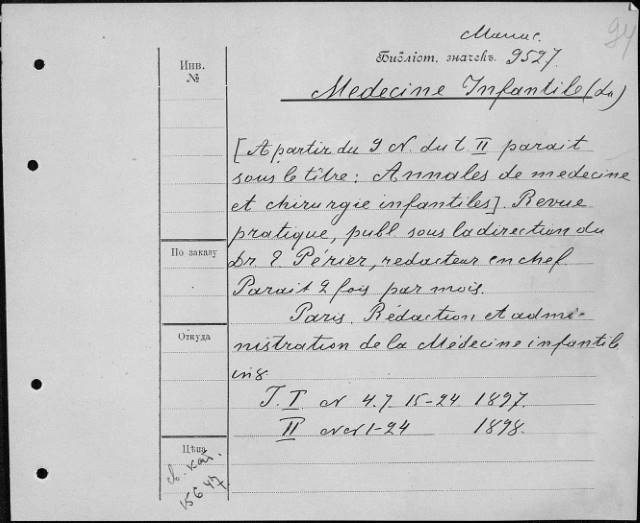 94
Библіот. значекъ 9527.
Инв.
№
Medecine Infantile (La)
[A partir du 9 N. du t II parait
sous le titre: Annales de medecine
et chirurgie infantiles]. Revue
pratique, publ. sous la direction du
По заказу
Dr. E. Périer, redacteur en chef.
Parait 2 fois par mois.
Paris. Rédaction et admi-
Откуда
nistration de la Médecine infantile
in 8.
T. I N 4.7 15-24 1897.
II NN 1-24 1898.
Цѣна
кат.
15647